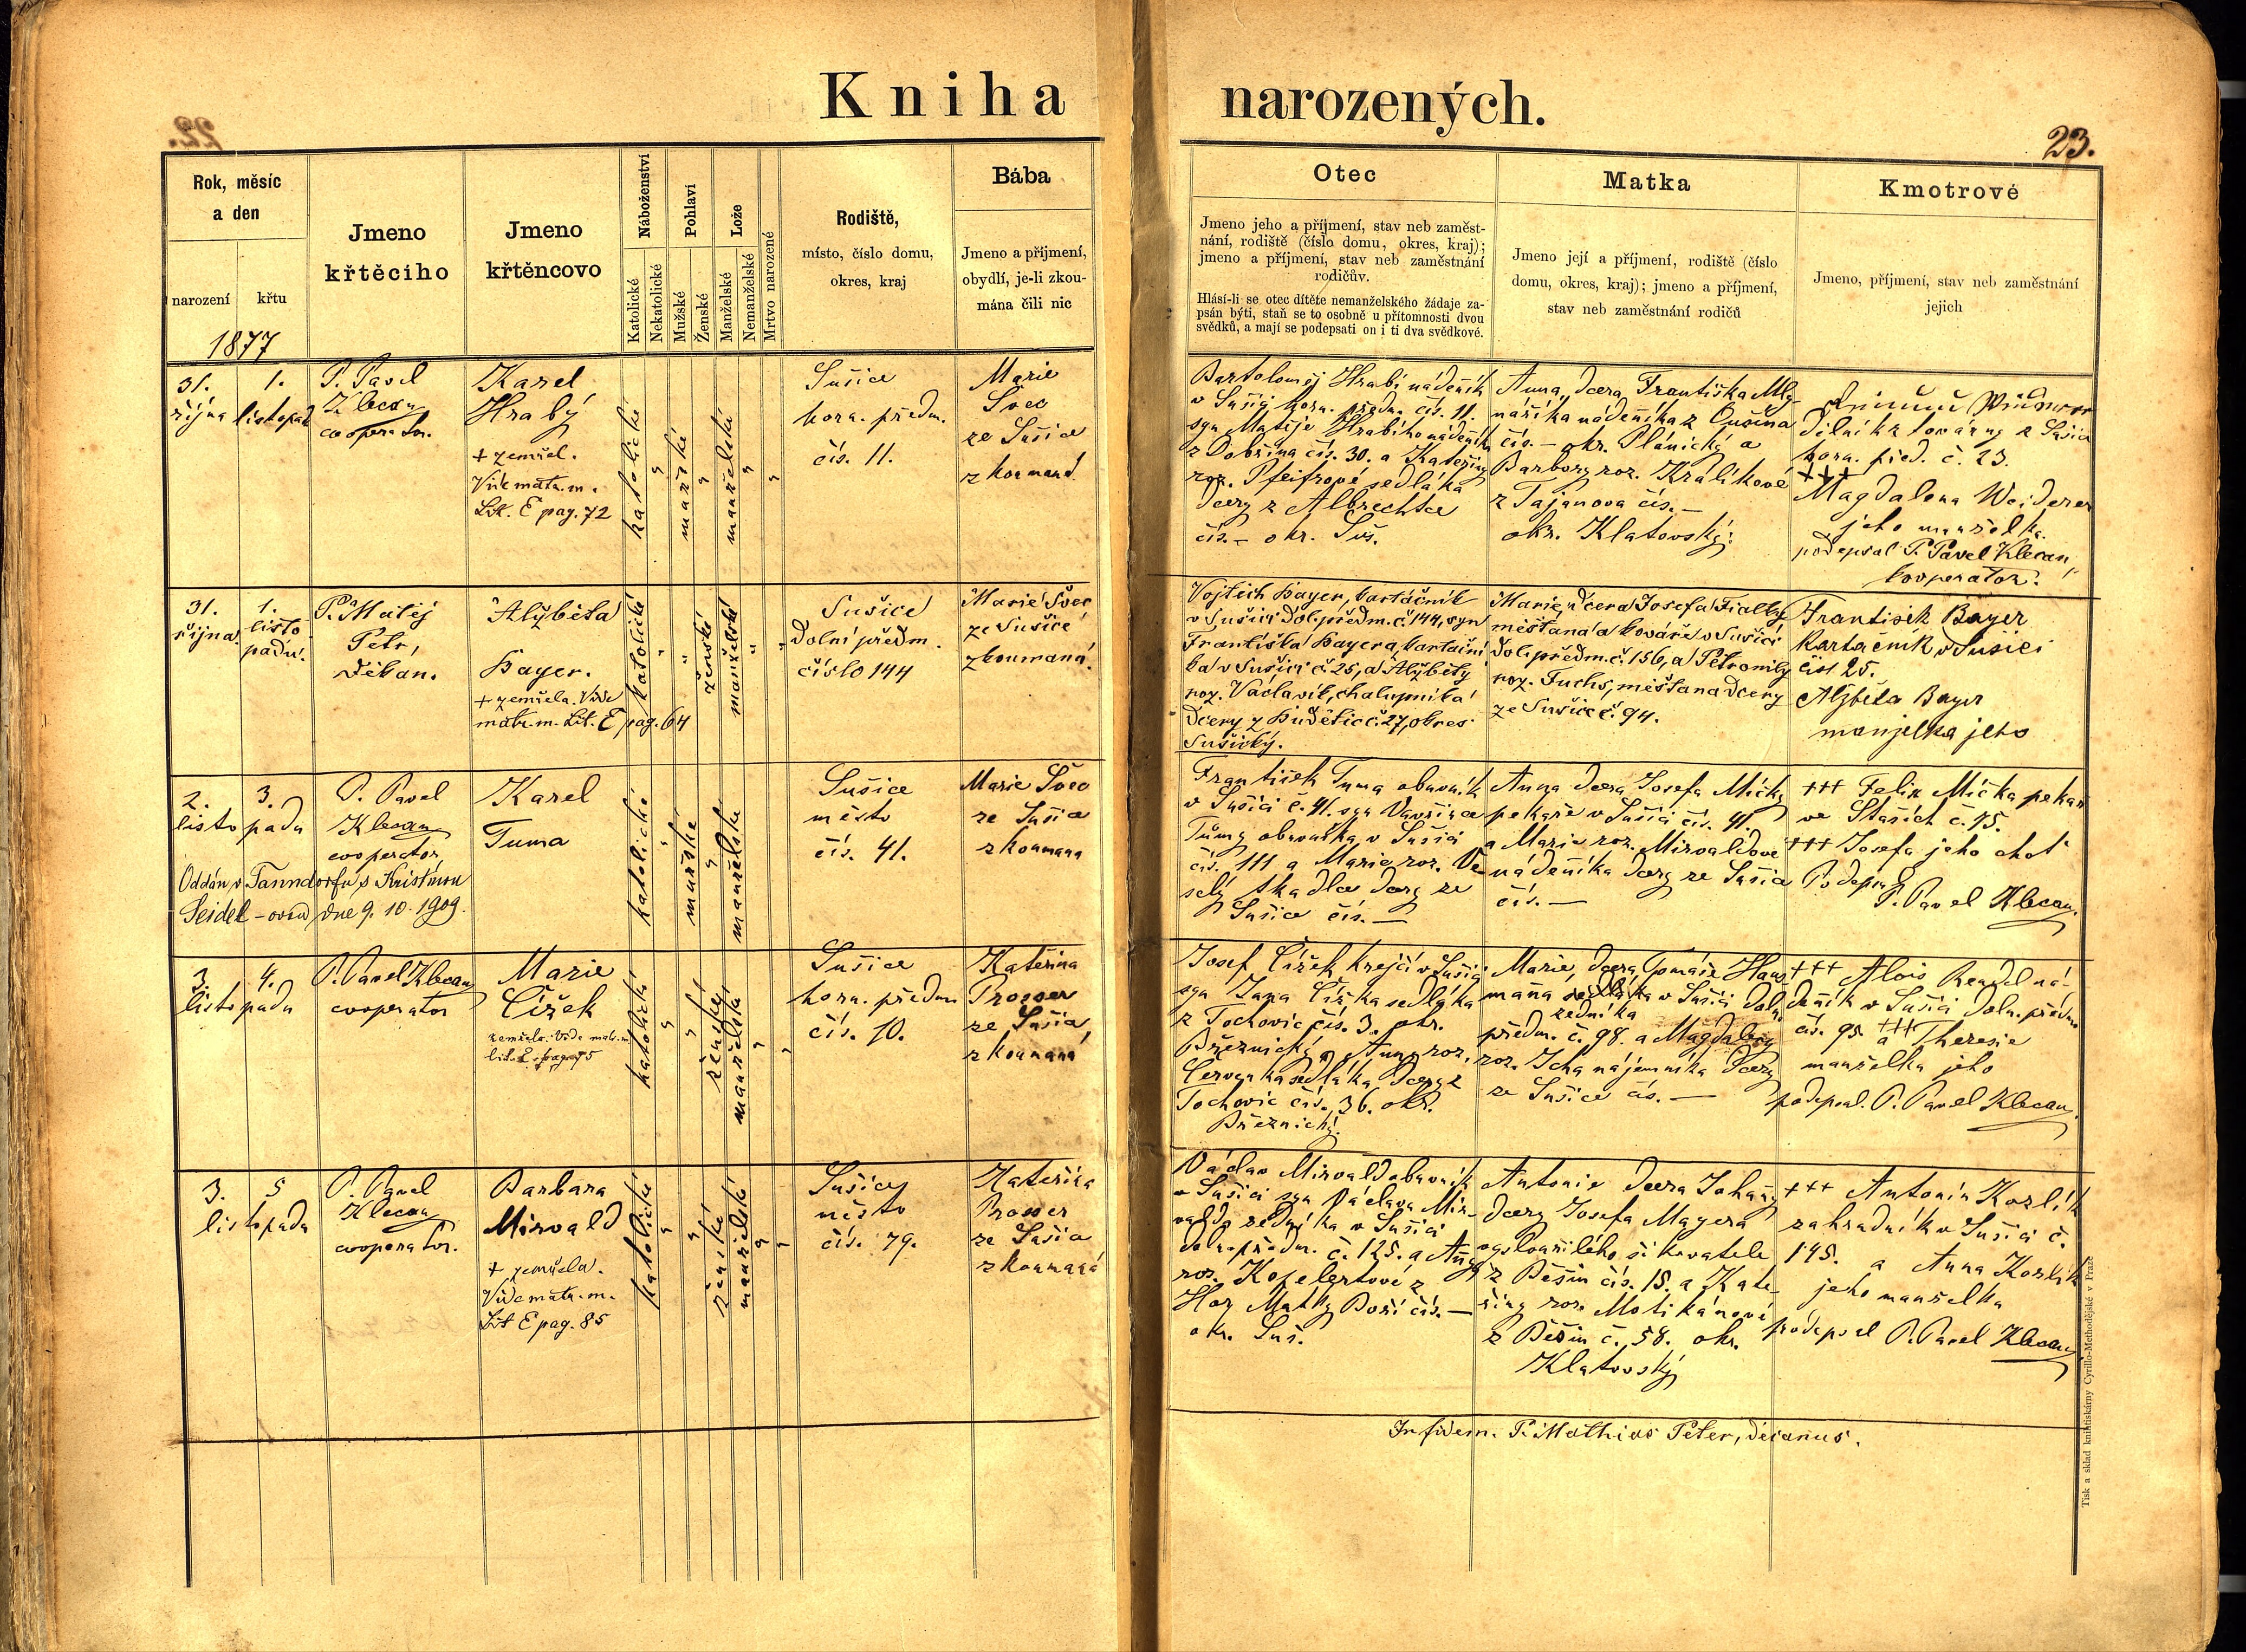 Kniha narozených.
22.
23.
Rok, měsíc
a den
narození
křtu
1877
Jmeno
křtěciho
Jmeno
křtěncovo
Náboženství
Katolické
Nekatolické
Pohlaví
Mužské
Ženské
Lože
Manželské
Nemanželské
Mrtvo narozené
Rodiště,
místo, číslo domu,
okres, kraj
Bába
Jmeno a příjmení,
obydlí, je-li zkou-
mána čili nic
Otec
Jmeno jeho a příjmení, stav neb zaměst-
nání, rodiště (číslo domu, okres, kraj);
jmeno a příjmení, stav neb zaměstnání
rodičův.
Hlásí-li se otec dítěte nemanželského žádaje za-
psán býti, staň se to osobně u přítomnosti dvou
svědků, a mají se podepsati on i ti dva svědkové.
Matka
Jmeno její a příjmení, rodiště (číslo
domu, okres, kraj); jmeno a příjmení,
stav neb zaměstnání rodičů
Kmotrové
Jmeno, příjmení, stav neb zaměstnání
jejich
31.
října
1.
listopad
P. Pavel
Klecan
cooperator.
Karel
Hrabý
+ zemřel.
Vide matr. m.
Lit. E pag. 72
katolické
"
mužské
"
manželské
"
"
Sušice
horn. předm.
čís. 11.
Marie
Švec
ze Sušice
zkoumaná.
Bartoloměj Hrabí nádeník
v Sušici horn. předm. čís. 11.
syn Matěje Hrabího nádeníka
z Dobršína čís. 30. a Kateřiny
roz. Pfeifrové sedláka
dcery z Albrechtce
čís. – okr. Suš.
Anna, dcera Františka Mly-
náříka nádeníka z
čís. – okr. Plánický a
Barbory roz. Králíkové
z Tajanova čís. –
okr. Klatovský.
dělník z továrny z Sušice
horn. před. č. 23.
+++
Magdalena Weiderer
jeho manželka.
podepsal P. Pavel Klecan,
kooperator.
31.
října
1.
listo
padu.
P. Matěj
Petr,
děkan.
Alžběta
Bayer.
+ zemřela. Vide
matr. m. Lit. E pag. 64
katolické
"
"
ženské
manželské
"
"
Sušice
Dolní předm.
číslo 144
Marie Švec
ze Sušice
zkoumaná.
Vojtěch Bayer, kartáčník
v Sušici dol. předm. č. 144, syn
Františka Bayera, kartáční
ka v Sušici č. 25, a Alžběty
roz. Václavík, chalupníka
dcery z Budětic č. 27, okres
Sušický.
Marie, dcera Josefa Fialky
měšťana a kováře v Sušici
dol. předm. č. 156, a Petronily
roz. Fuchs, měšťana dcery
ze Sušice č. 94.
František Bayer
Kartačník v Sušici
čisl 25.
Alžběta Bayer
manželka jeho
2.
listo
3.
padu
P. Pavel
Klecan
cooperator
Karel
Tuma
Oddán v Tanndorfu s Kristinou
Seidel – ovou dne 9. 10. 1909.
katolické
"
mužské
"
manželské
Sušice
město
čís. 41.
Marie Švec
ze Sušice
zkoumaná
František Tuma obuvník
v Sušici č. 41. syn Vavřince
Tůmy obuvníka v Sušici
čís. 111 a Marie roz. Ve-
selý tkadlce dcery ze
Sušice čís. –
Anna dcera Josefa Míčky
pekaře v Sušici čís. 41.
a Marie roz. Mirvaldové
nádeníka dcery ze Sušice
čís. –
+++ Felix Míčka pekař
ve Staších č. 15.
+++ Josefa jeho choť
Podepsal
P. Pavel Klecan.
3.
listo
4.
padu
P. Pavel Klecan
cooperator
Marie
Čížek
zemřela. Vide matr. m.
lit. E pag. 75
katolické
"
"
ženské
manželské
"
"
Sušice
horn. předm
čís. 10.
Kateřina
Prosser
ze Sušice,
zkoumaná
Josef Čížek, krejčí v Sušici
syn Jana Čížka sedláka
z Tochovic čís. 3. okr.
Březnický a Anny roz.
Červenka sedláka dcery z
Tochovic čís. 36. okr.
Březnický.
Marie, dcera Tomáše Haus-
manna sedláka v Sušici doln.
zedníka
předm. č. 98. a Magdaleny
roz. Icha nájemníka dcery
ze Sušice čís. –
+++ Alois Rendl ná-
deník v Sušici doln. předm
čís. 95. a +++ Theresie
manželka jeho
podepsal. P. Pavel Klecan.
3.
listo
5
padu
P. Pavel
Klecan
cooperator.
Barbara
Mirvald
+ zemřela.
Vide matr. m.
Lit E pag. 85
katolické
"
"
ženské
manželské
"
"
Sušice
město
čís. 79.
Kateřina
Prosser
ze Sušice
zkoumaná
Václav Mirvald obuvník
v Sušici syn Václava Mir-
valda zedníka v Sušici
doln. předm. č. 125. a Anny
roz. Kopelentové z
Hor Matky Boží čís. –
okr. Suš.
Antonie dcera Johanny
dcery Josefa Mayera
vysloužilého šikovatele
z Běšin čís. 15. a Kate-
řiny roz. Motikánové
z Běšin č. 58. okr.
Klatovský
+++ Antonín Kozlík
zahradník v Sušici č.
145. a Anna Kozlík
jeho manželka
podepsal P. Pavel Klecan.
In fidem. P. Mathias Peter, decanus.
Tisk a sklad knihtiskárny Cyrillo-Methodějské v Praze